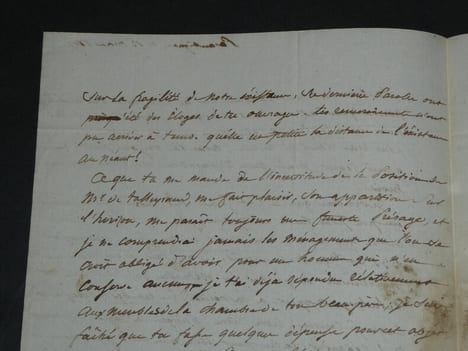 Sur la fragilité de notre existence, Ses dernieres Paroles ont
été des éloges de ton ouvrage tes remerciements n'ont
pu arriver à tems. quelle est petite la distance de l'existence
au neant!
Ce que tu me mande de l'incertitude de la Position de
Mr. de talleyrand, me fait plaisir, Son apparition sur
l'horison, me parait toujours un funeste Présage, et
je ne comprendrai jamais les ménagemens que l'on se
croit obligé d'avoir pour un homme qui n'en
conserve aucun, je t'ai déja répondu relativement
aux meubles de la chambre de ton beau pere, je suis
fâché que tu fasse quelque dépense pour cet objet